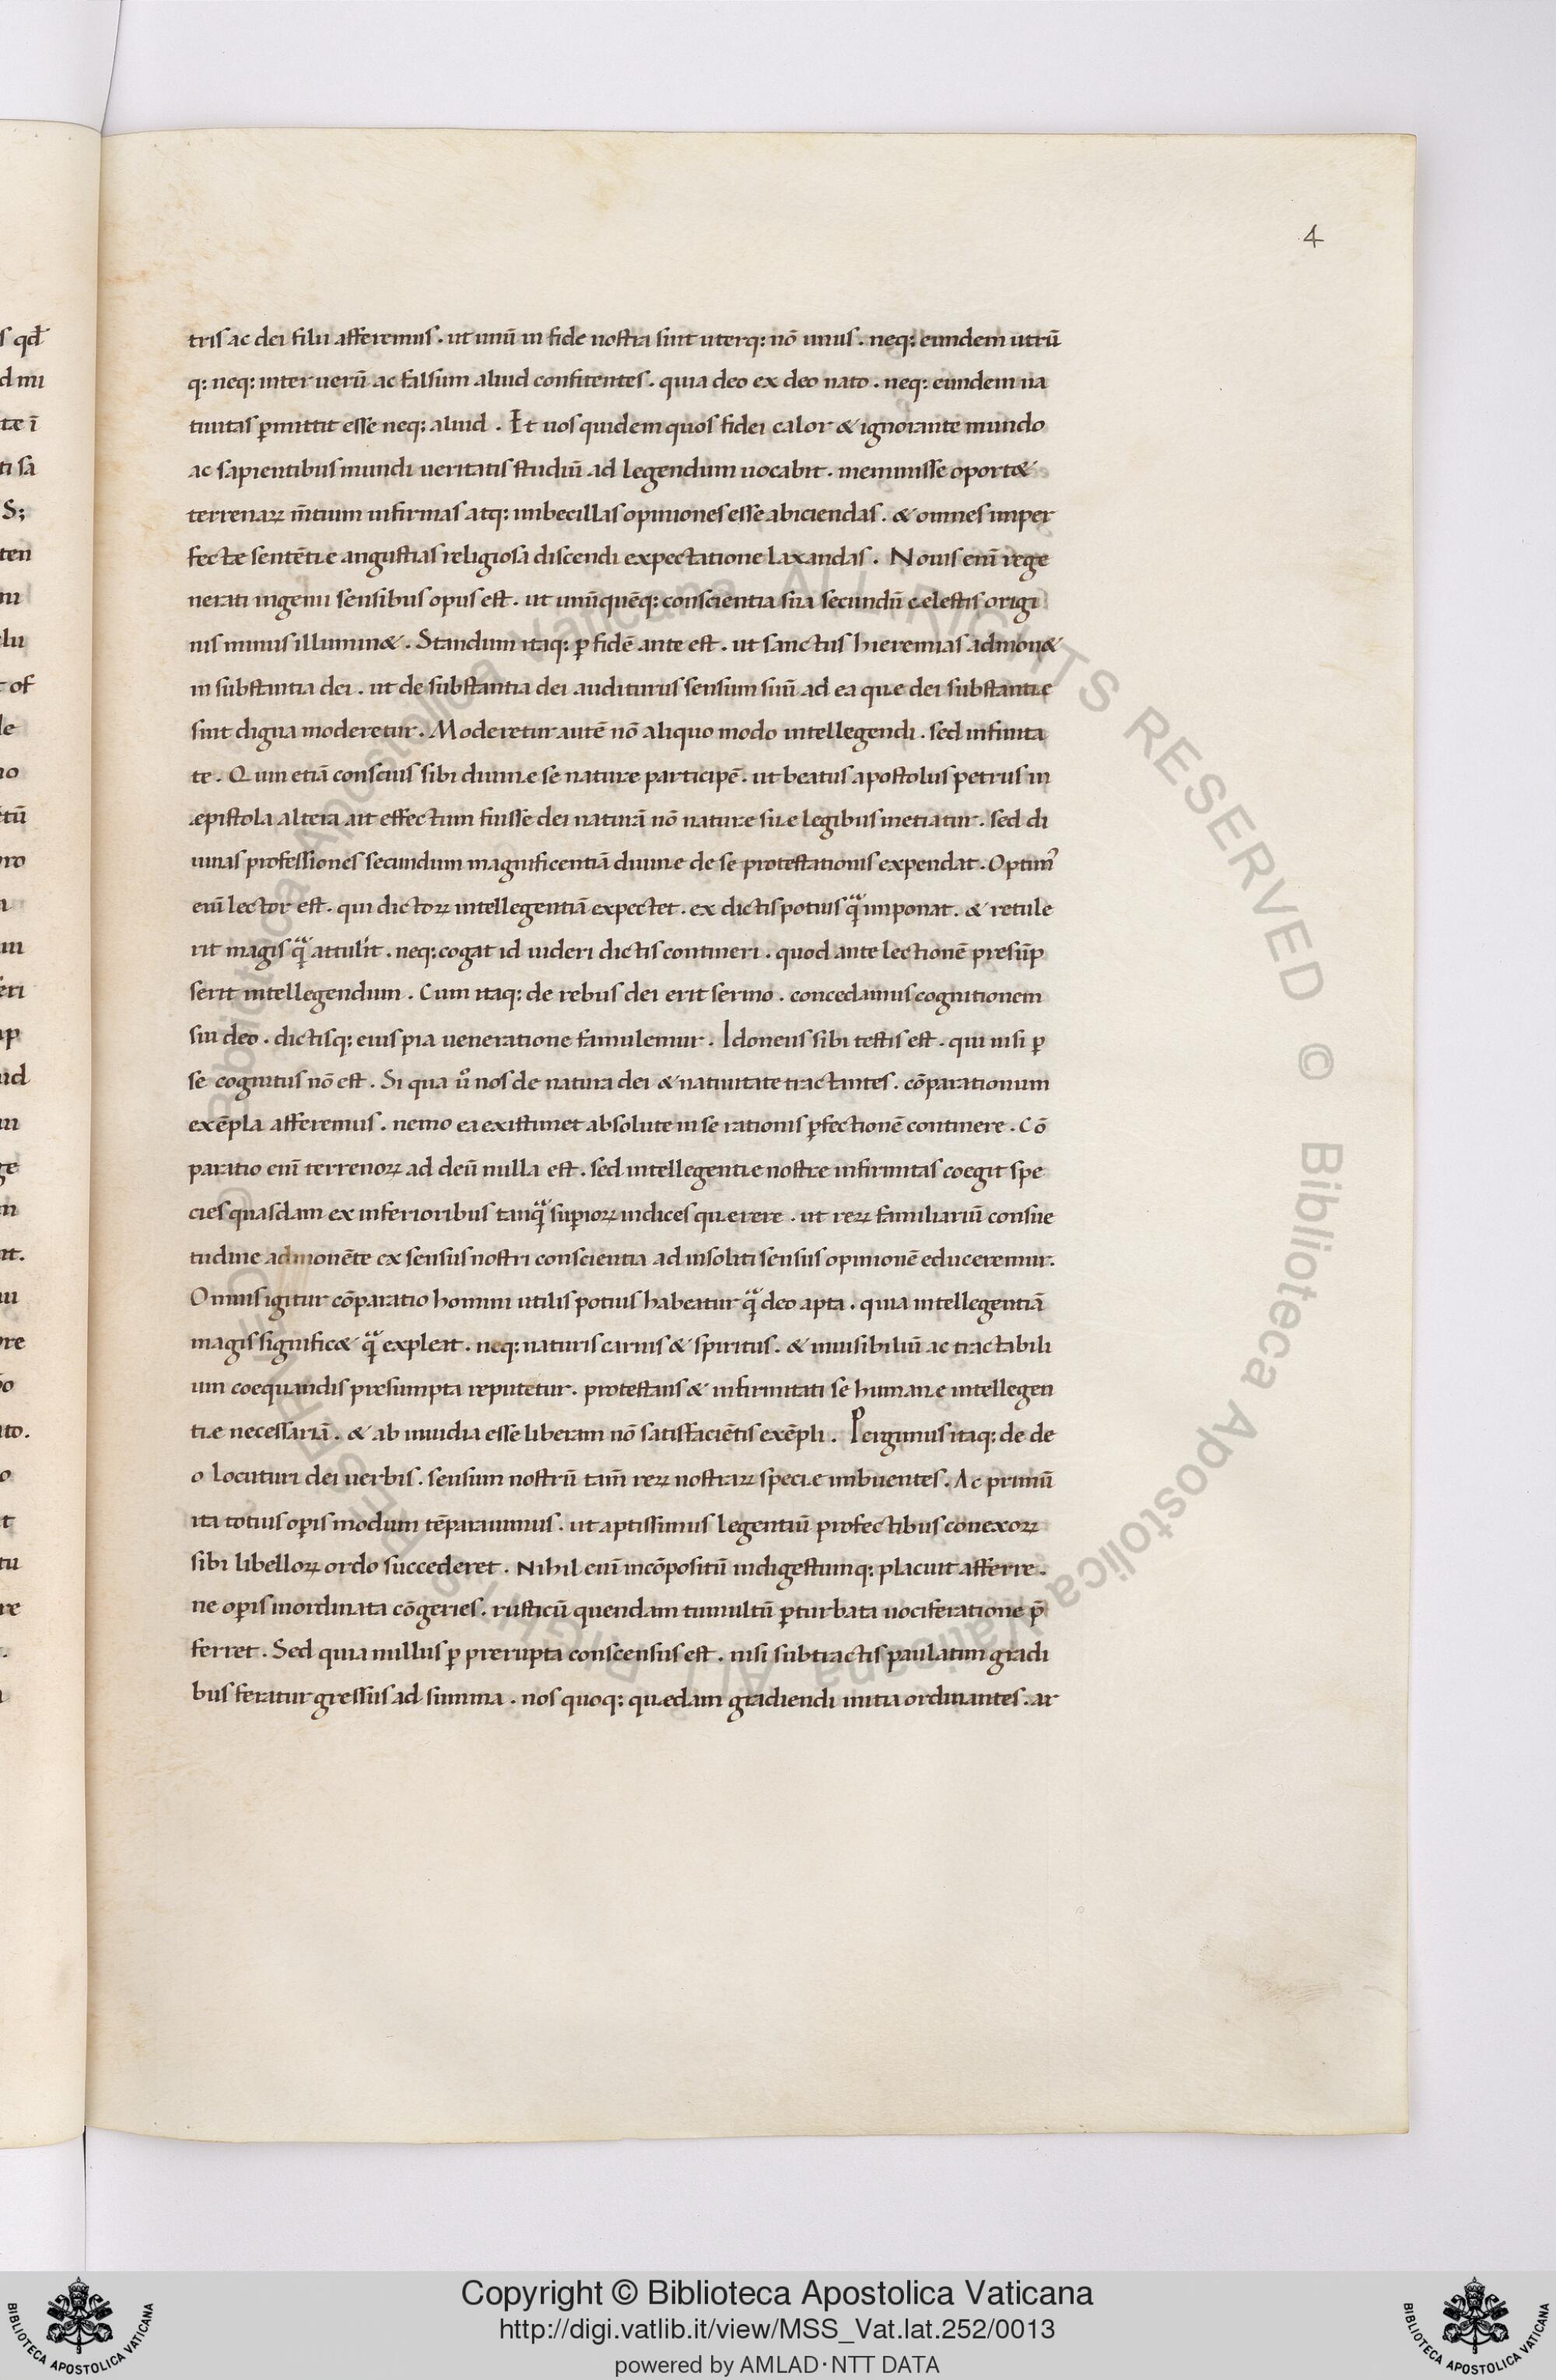 4
tris ac dei filii afferemus . ut unū in fide nostra sint uterq: nō unus . neq: eundem utrū
q: neq: inter uerū ac falsum aliud confitentes . quia deo ex deo nato . neq: eundem na
tiuitas ꝑmittit esse neq: aliud . Et uos quidem quos fidei calor & ignorante mundo
ac sapientibus mundi ueritatis studiū ad legendum uocabit . meminisse oport&
terrenaꝝ m̄tium infirmas atq: imbecillas opiniones esse abiciendas . & omnes imper
fectæ sentētiæ angustias religiosa discendi expectatione laxandas . Nouis eni᷒ rege
nerati ingenii sensibus opus est . ut unūquēq: conscientia sua secundū cælestis origi
nis munus illumin& . Standum itaq: ꝑ fidē ante est . ut sanctus hieremias admon&
in substantia dei . ut de substantia dei auditurus sensum suū ad ea quæ dei substantiæ
sint digna moderetur . Moderetur autē nō aliquo modo intellegendi . sed infinita
te . Quin etiā conscius sibi diuinæ se naturæ participē . ut beatus apostolus petrus in
æpistola altera ait effectum fuisse dei naturā nō naturæ suæ legibus metiatur . sed di
uinas professiones secundum magnificentiā diuinæ de se protestationis expendat . Optim᷒
enī lector est . qui dictoꝝ intellegentiā expectet . ex dictis potius quā imponat . & retule
rit magis quā attulit . neq: cogat id uideri dictis contineri . quod ante lectionē presūp
serit intellegendum . Cum itaq: de rebus dei erit sermo . concedamus cognitionem
sui deo . dictisq: eius pia ueneratione famulemur . Idoneus sibi testis est . qui nisi ꝑ
se cognitus nō est . Si qua ūo nos de natura dei & natiuitate tractantes . cōparationum
exēpla afferemus . nemo ea existimet absolute in se rationis ꝑfectionē continere . Cō
paratio enī terrenoꝝ ad deū nulla est . sed intellegentiæ nostræ infirmitas coegit spe
cies quasdam ex inferioribus tanquā suꝑioꝝ indices quærere . ut reꝝ familiariū consue
tudine admonēte ex sensus nostri conscientia ad insoliti sensus opinionē educeremur .
Omnis igitur cōparatio homini utilis potius habeatur quā deo apta . quia intellegentiā
magis signific& quā expleat . neq: naturis carnis & spiritus . & inuisibiliū ac tractabili
um coequandis presumpta reputetur . protestans & infirmitati se humanæ intellegen
tiæ necessariā . & ab inuidia esse liberam nō satisfaciētis exēpli . Pergimus itaq: de de
o locuturi dei uerbis . sensum nostrū tam̄ reꝝ nostraꝝ speciæ imbuentes . Ac primū
ita totius oꝑis modum tēparauimus . ut aptissimus legentiū profectibus conexoꝝ
sibi libelloꝝ ordo succederet . Nihil enī incōpositū indigestumq: placuit afferre .
ne oꝑis inordinata cōgeries . rusticū quendam tumultū ꝑturbata uociferatione p̄
ferret . Sed quia nullus ꝑ prerupta conscensus est . nisi subtractis paulatim gradi
bus feratur gressus ad summa . nos quoq: quædam gradiendi initia ordinantes . ar
Copyright © Biblioteca Apostolica Vaticana
http://digi.vatlib.it/view/MSS_Vat.lat.252/0013
powered by AMLAD·NTT DATA